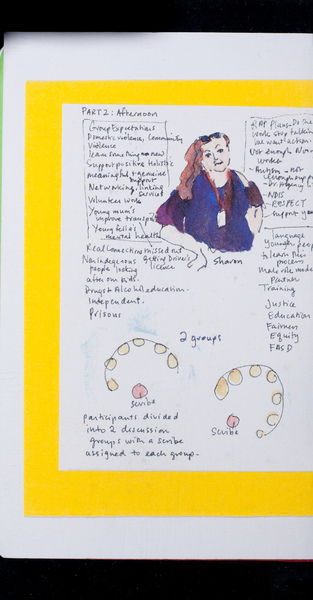 PART 2: Afternoon
Group Expectations
Domestic violence, Community
Violence
learn something new
Support positive Holistic
meaningful + genuine
support
Networking, linking
services
Volunteer work
Young mum's
improve transport
Young fella's
mental health
Real connections missed out
Non Indigenous
people looking
after our kids.
getting Driver's
licence
Drugs + Alcohol education.
Independent.
Prisons
Sharon
RAP Plans - Do the
work stop talking
we want action.
Not enough
worker
not
enough support
NDIS
RESPECT
Support
language
younger people
to learn
process
Male role model
Partner
Training
Justice
Education
Fairness
Equity
FASD
2 groups
Scribe
Scribe
participants divided
into 2 discussion
groups with a scribe
assigned to each group.